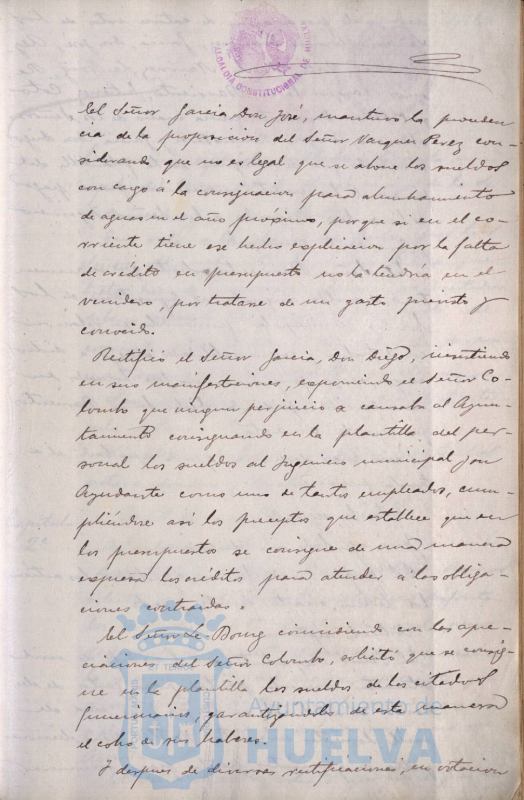 ALCALDIA CONSTITUCIONAL DE HUELVA
El Señor Garcia, Don José, mantuvo la proceden-
cia de la proposicion del Señor Vazquez Perez con-
siderando que no es legal que se abone los sueldos
con cargo á la consignacion para alumbramiento
de aguas en el año proximo, porque si en el co-
rriente tiene ese hecho explicacion por la falta
de crédito en presupuesto no la tendria en el
venidero, por tratarse de un gasto previsto y
conocido.
Rectificó el Señor Garcia, Don Diego, insistiendo
en sus manifestaciones, exponiendo el Señor Co-
lombo que ningun perjuicio se causaba al Ayun-
tamiento consignando en la plantilla del per-
sonal los sueldos al Ingeniero municipal y su
Ayudante como uno de tantos empleados, cum-
pliéndose así los preceptos que establece que en
los presupuestos se consigne de una manera
expresa los créditos para atender á las obliga-
ciones contraidas.
El Señor Le-Bourg coincidiendo con las apre-
ciaciones del Señor Colombo, solicitó que se consig-
ne en la plantilla los sueldos de los citados
funcionarios, garantizandoles de esta manera
el cobro de sus haberes.
Y despues de diversas rectificaciones, en votacion
Ayuntamiento de
HUELVA